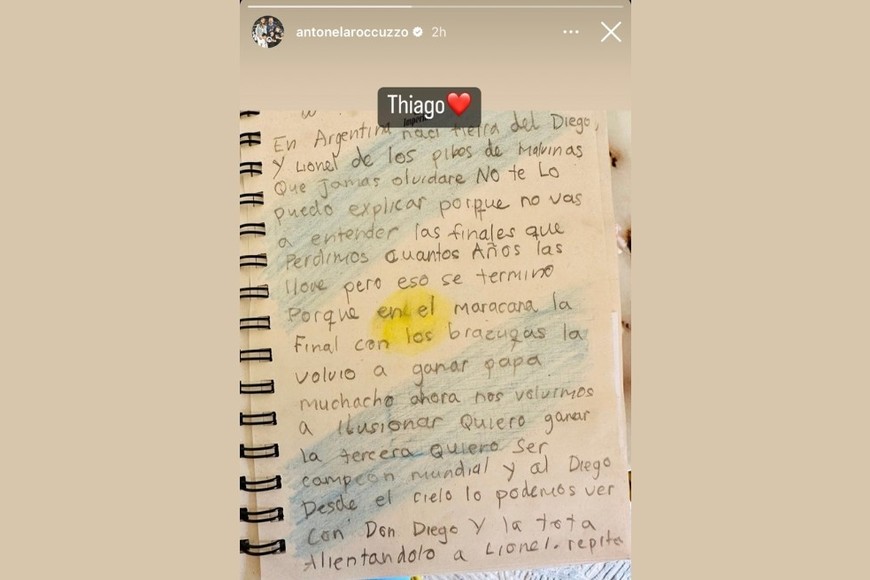 antonelaroccuzzo 2h
Thiago❤️
En Argentina naci tierra del Diego,
Y Lionel de los pibes de Malvinas
Que Jamas olvidare No te Lo
puedo explicar porque no vas
a entender las finales que
Perdimos cuantos Años las
llore pero eso se termino
Porque en el maracana la
Final con los brazugas la
volvio a ganar papa
muchacho ahora nos volvimos
a Ilusionar Quiero ganar
la tercera Quiero Ser
campeon mundial y al Diego
Desde el cielo lo podemos ver
Con Don Diego Y la tota
Alientandolo a Lionel. repita